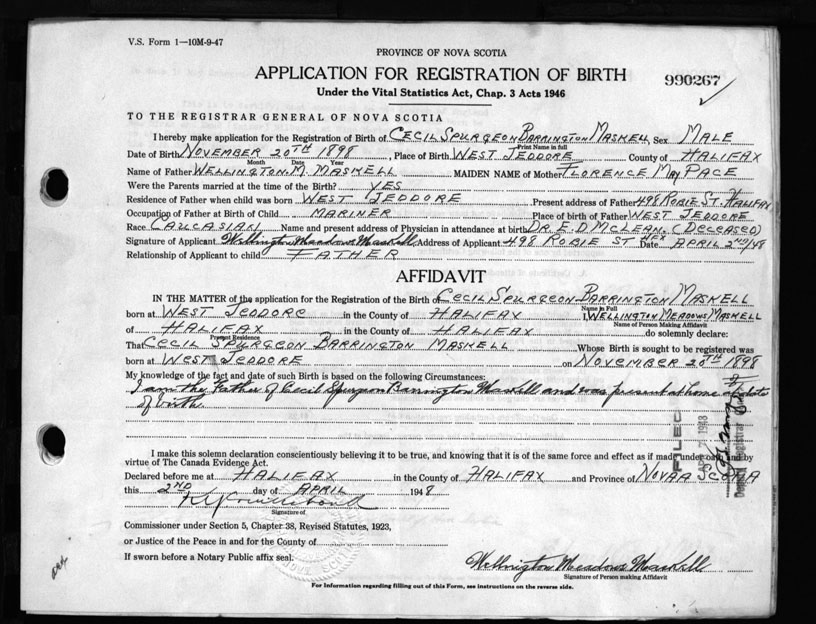 V.S. Form 1—10M-9-47
PROVINCE OF NOVA SCOTIA
APPLICATION FOR REGISTRATION OF BIRTH
990267
Under the Vital Statistics Act, Chap. 3 Acts 1946
TO THE REGISTRAR GENERAL OF NOVA SCOTIA
I hereby make application for the Registration of Birth of CECIL SPURGEON BARRINGTON MASKELL, Sex MALE
Print Name in full
Date of Birth NOVEMBER 20TH 1898, Place of Birth WEST JEDDORE County of HALIFAX
Month Date Year
Name of Father WELLINGTON. M. MASKELL MAIDEN NAME of Mother FLORENCE May PACE
Were the Parents married at the time of the Birth? YES
Residence of Father when child was born WEST JEDDORE Present address of Father 498 ROBIE ST. HALIFAX
Occupation of Father at Birth of Child MARINER Place of birth of Father WEST JEDDORE
Race CAUCASIAN Name and present address of Physician in attendance at birth DR. E. D McLEAN. (DECEASED)
Signature of Applicant Wellington Meadows Maskell Address of Applicant 498 ROBIE ST HFX Date APRIL 2ND/48
Relationship of Applicant to child FATHER
AFFIDAVIT
IN THE MATTER of the application for the Registration of the Birth of CECIL SPURGEON BARRINGTON MASKELL
Name in Full
born at WEST JEDDORE in the County of HALIFAX I, WELLINGTON MEADOWS MASKELL
Name of Person Making Affidavit
of HALIFAX in the County of HALIFAX do solemnly declare:
Present Residence
That CECIL SPURGEON BARRINGTON MASKELL Whose Birth is sought to be registered was
born at WEST JEDDORE on NOVEMBER 20TH 1898
My knowledge of the fact and date of such Birth is based on the following Circumstances:
I am the Father of Cecil Spurgeon Barrington Maskell and was present at home at date
of birth.
FILED
1948
I make this solemn declaration conscientiously believing it to be true, and knowing that it is of the same force and effect as if made under oath and by
virtue of The Canada Evidence Act.
Declared before me at HALIFAX in the County of HALIFAX and Province of NOVA SCOTIA
this 2ND day of APRIL 1948
Signature of
Commissioner under Section 5, Chapter 38, Revised Statutes, 1923,
or Justice of the Peace in and for the County of
If sworn before a Notary Public affix seal.
Wellington Meadows Maskell
Signature of Person making Affidavit
For Information regarding filling out of this Form, see instructions on the reverse side.